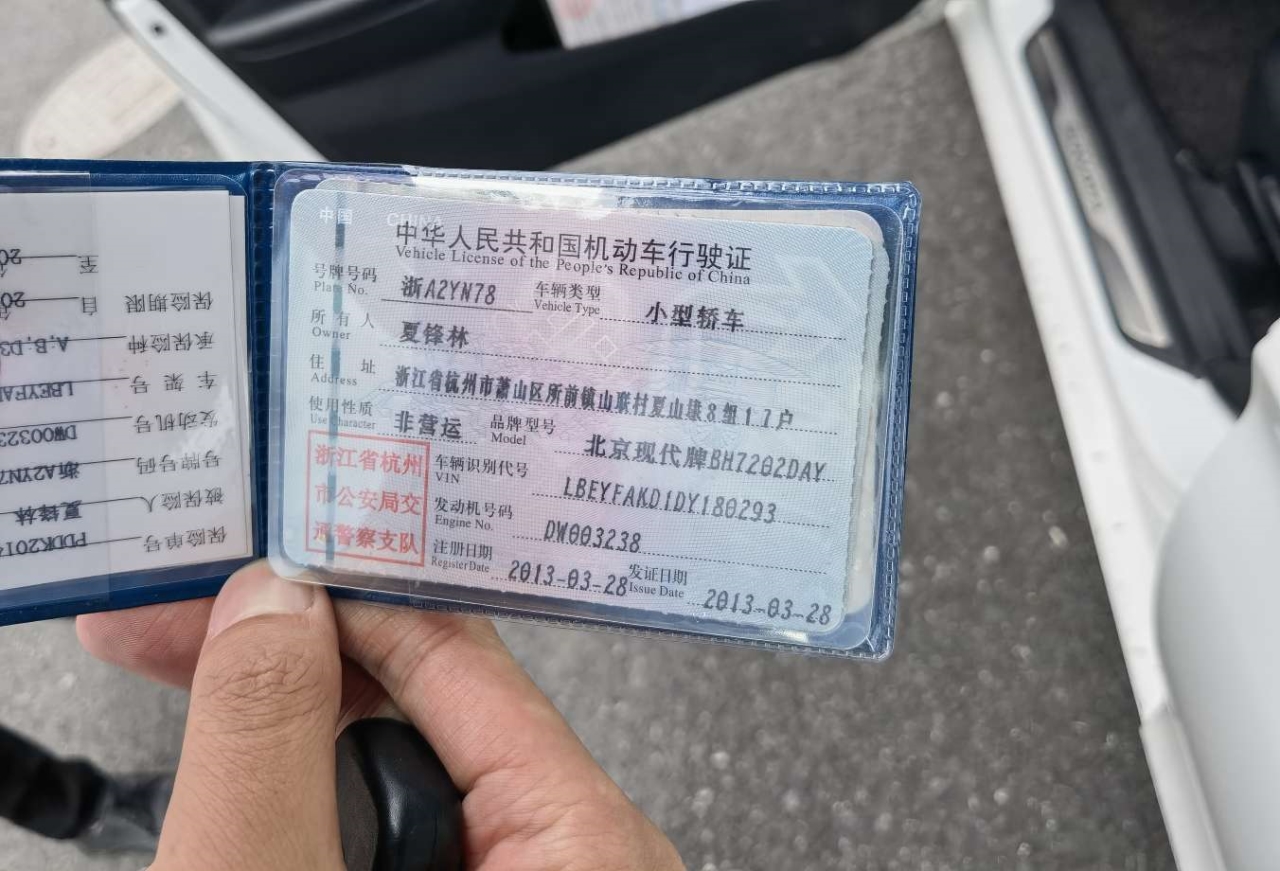 中国 CHINA
中华人民共和国机动车行驶证
Vehicle License of the People's Republic of China
号牌号码 浙A2YN78 车辆类型 小型轿车
Plate No. Vehicle Type
所有人 夏锋林
Owner
住址 浙江省杭州市萧山区所前镇山联村夏山埭8组17户
Address
使用性质 非营运 品牌型号 北京现代牌BH7202DAY
Use Character Model
浙江省杭州
市公安局交
通警察支队
车辆识别代号 LBEYFAKD1DY180293
VIN
发动机号码 DW003238
Engine No.
注册日期 2013-03-28 发证日期 2013-03-28
Register Date Issue Date
保险单号 PDDK201
被保险人 夏锋林
号牌号码 浙A2YN7
发动机号 DW00323
车架号 LBEYFA
承保险种 A,B,D3
保险期限 自 20
至 20